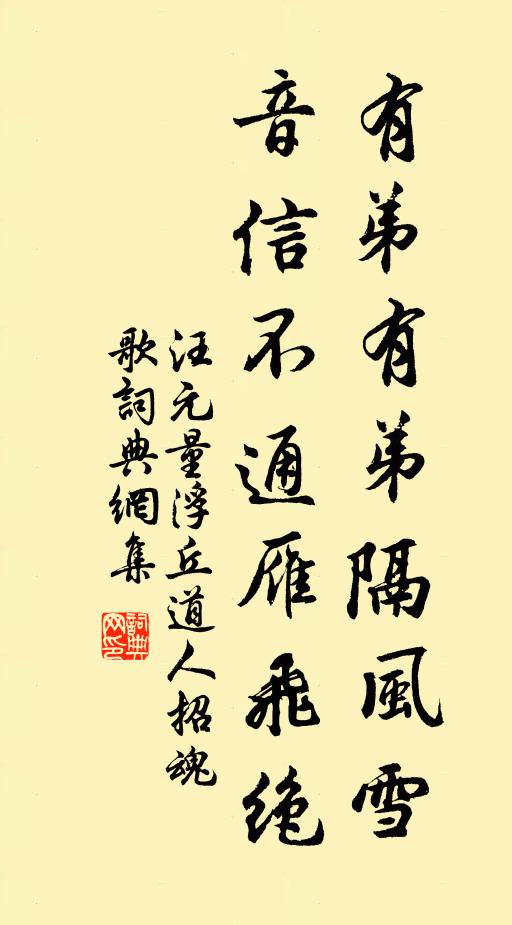 有弟有弟隔風雪
音信不通雁飛絶
汪元量浮丘道人招魂
歌詞典網集
詞典网印